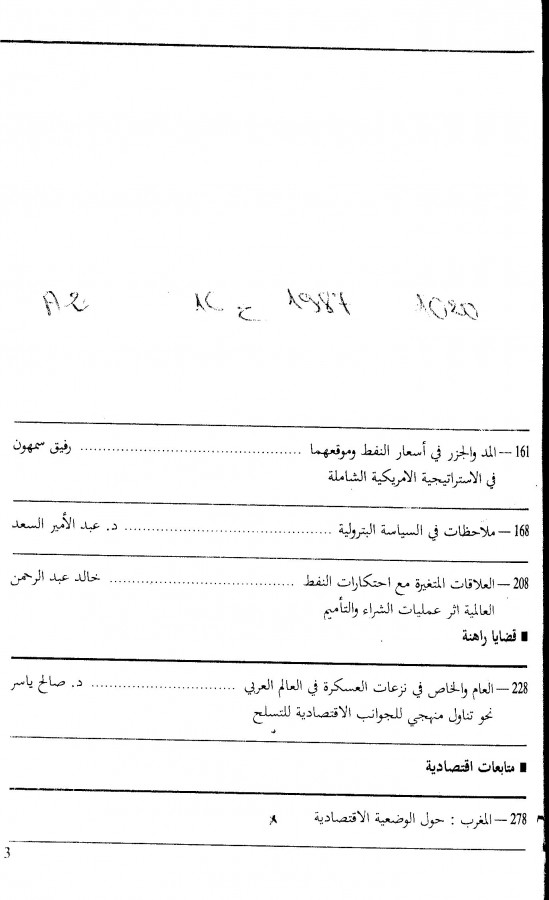 A2 1C ج 1987 1020
161 — المد والجزر في أسعار النفط وموقعهما ........ رفيق سمهون
في الاستراتيجية الامريكية الشاملة
168 — ملاحظات في السياسة البترولية ........ د. عبد الأمير السعد
208 — العلاقات المتغيرة مع احتكارات النفط ........ خالد عبد الرحمن
العالمية اثر عمليات الشراء والتأميم
■ قضايا راهنة
228 — العام والخاص في نزعات العسكرة في العالم العربي ........ د. صالح ياسر
نحو تناول منهجي للجوانب الاقتصادية للتسلح
■ متابعات اقتصادية
278 — المغرب : حول الوضعية الاقتصادية
3